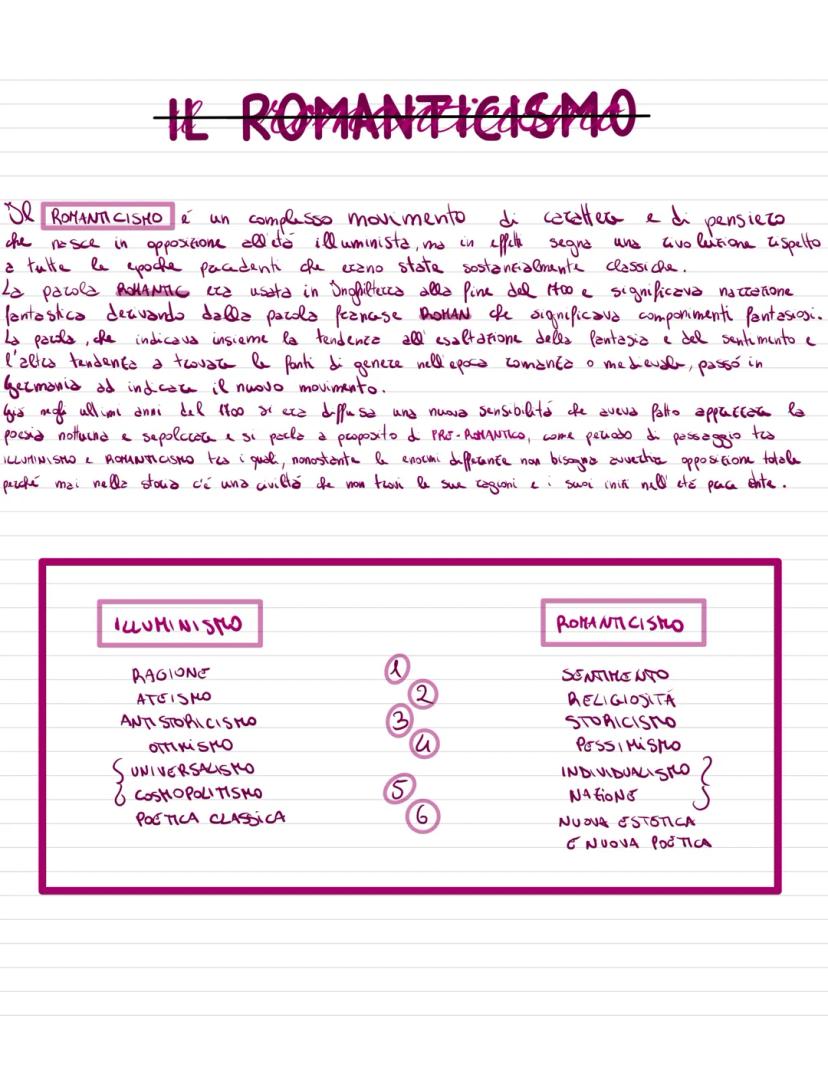 IL ROMANTICISMO
Il ROMANTICISMO é un complesso movimento di carattere e di pensiero
che nasce in opposizione all'etá illuminista, ma in effetti segna una rivoluzione rispetto
a tutte le epoche precedenti che erano state sostanzialmente classiche.
La parola ROMANTIC era usata in Inghilterra alla fine del 1700 e significava narrazione
fantastica derivando dalla parola francese ROMAN che significava componimenti fantasiosi.
La parola, che indicava insieme la tendenza all'esaltazione della fantasia e del sentimento e
l'altra tendenza a trovare le fonti di genere nell'epoca romanza o medievale, passó in
Germania ad indicare il nuovo movimento.
Giá negli ultimi anni del 1700 si era diffusa una nuova sensibilitá che aveva fatto apprezzare la
poesia notturna e sepolcrale e si parla a proposito di PRE-ROMANTICO, come periodo di passaggio tra
ILLUMINISMO E ROMANTICISMO tra i quali, nonostante le enormi differenze non bisogna avvertire opposizione totale
perché mai nella storia c'é una civiltá che non trovi le sue ragioni e i suoi inizi nell'etá precedente.
ILLUMINISMO ROMANTICISMO
RAGIONE 1 SENTIMENTO
ATEISMO 2 RELIGIOSITÁ
ANTISTORICISMO 3 STORICISMO
OTTIMISMO 4 PESSIMISMO
UNIVERSALISMO INDIVIDUALISMO
COSMOPOLITISMO 5 NAZIONE
POETICA CLASSICA 6 NUOVA ESTETICA
E NUOVA POETICA